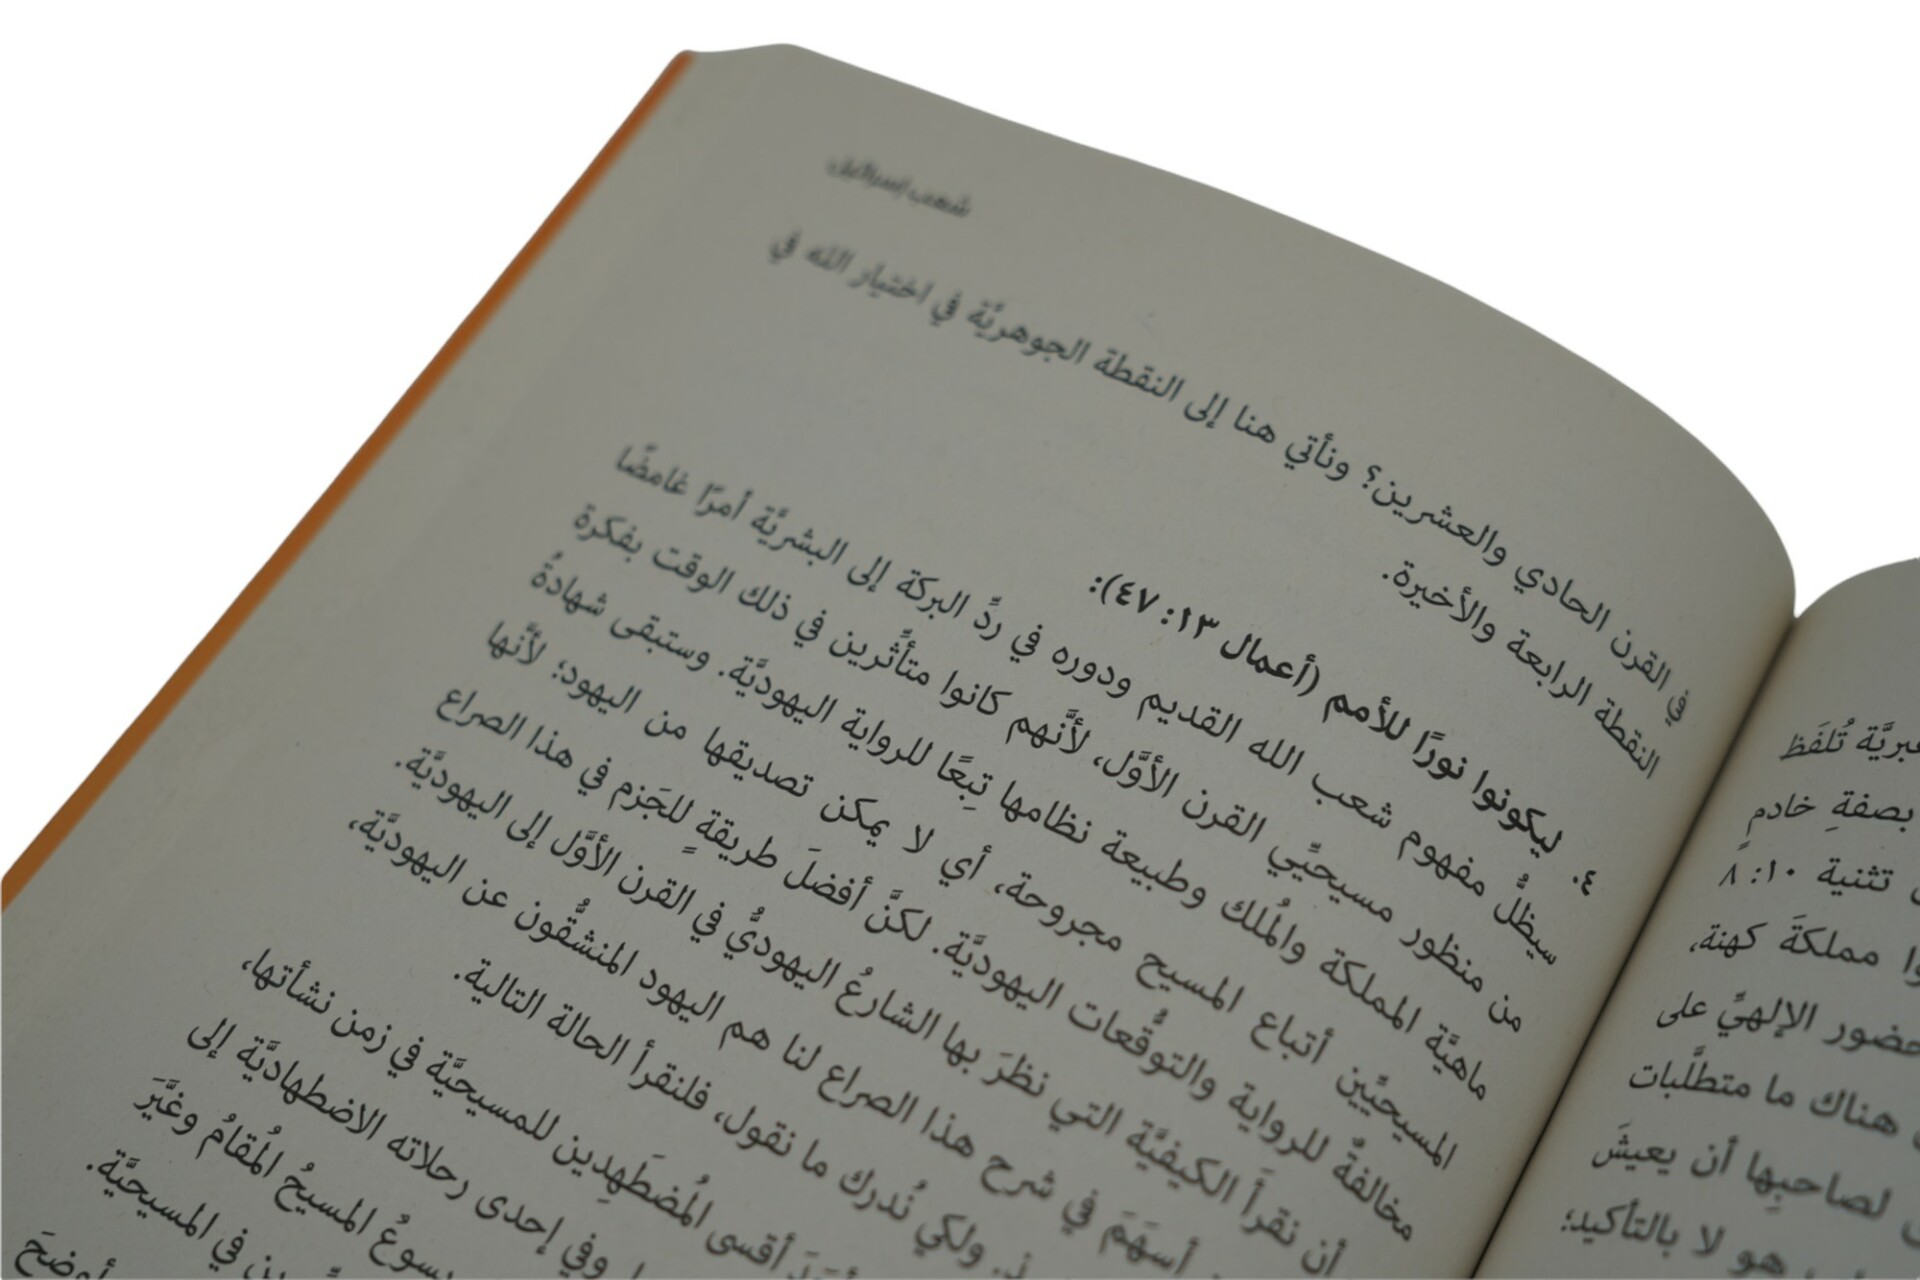 شعب إسرائيل
في القرن الحادي والعشرين؟ ونأتي هنا إلى النقطة الجوهريَّة في اختيار الله في
النقطة الرابعة والأخيرة.
٤. ليكونوا نورًا للأمم (أعمال ١٣: ٤٧):
سيظلُّ مفهوم شعب الله القديم ودوره في ردِّ البركة إلى البشريَّة أمرًا غامضًا
من منظور مسيحيِّي القرن الأوَّل، لأنَّهم كانوا متأثِّرين في ذلك الوقت بفكرة
ماهيَّة المملكة والمُلك وطبيعة نظامها تبِعًا للرواية اليهوديَّة. وستبقى شهادةُ
المسيحيِّين أتباع المسيح مجروحة، أي لا يمكن تصديقها من اليهود؛ لأنَّها
مخالفةٌ للرواية والتوقُّعات اليهوديَّة. لكنَّ أفضلَ طريقةٍ للجَزم في هذا الصراع
أن نقرأَ الكيفيَّة التي نظرَ بها الشارعُ اليهوديُّ في القرن الأوَّل إلى اليهوديَّة.
أسهَمَ في شرح هذا الصراع لنا هم اليهود المنشقُّون عن اليهوديَّة،
ولكي نُدرك ما نقول، فلنقرأ الحالة التالية.
أقسى المُضطَهِدين للمسيحيَّة في زمن نشأتها،
وفي إحدى رحلاته الاضطهاديَّة إلى
يسوعُ المسيحُ المُقامُ وغيَّرَ
في المسيحيَّة.
أوضحَ
تُلفَظ
بصفةِ خادمٍ
تثنية ١٠: ٨
مملكةَ كهنة،
الإلهيِّ على
هناك ما متطلَّبات
لصاحبِها أن يعيشَ
هو لا بالتأكيد؛